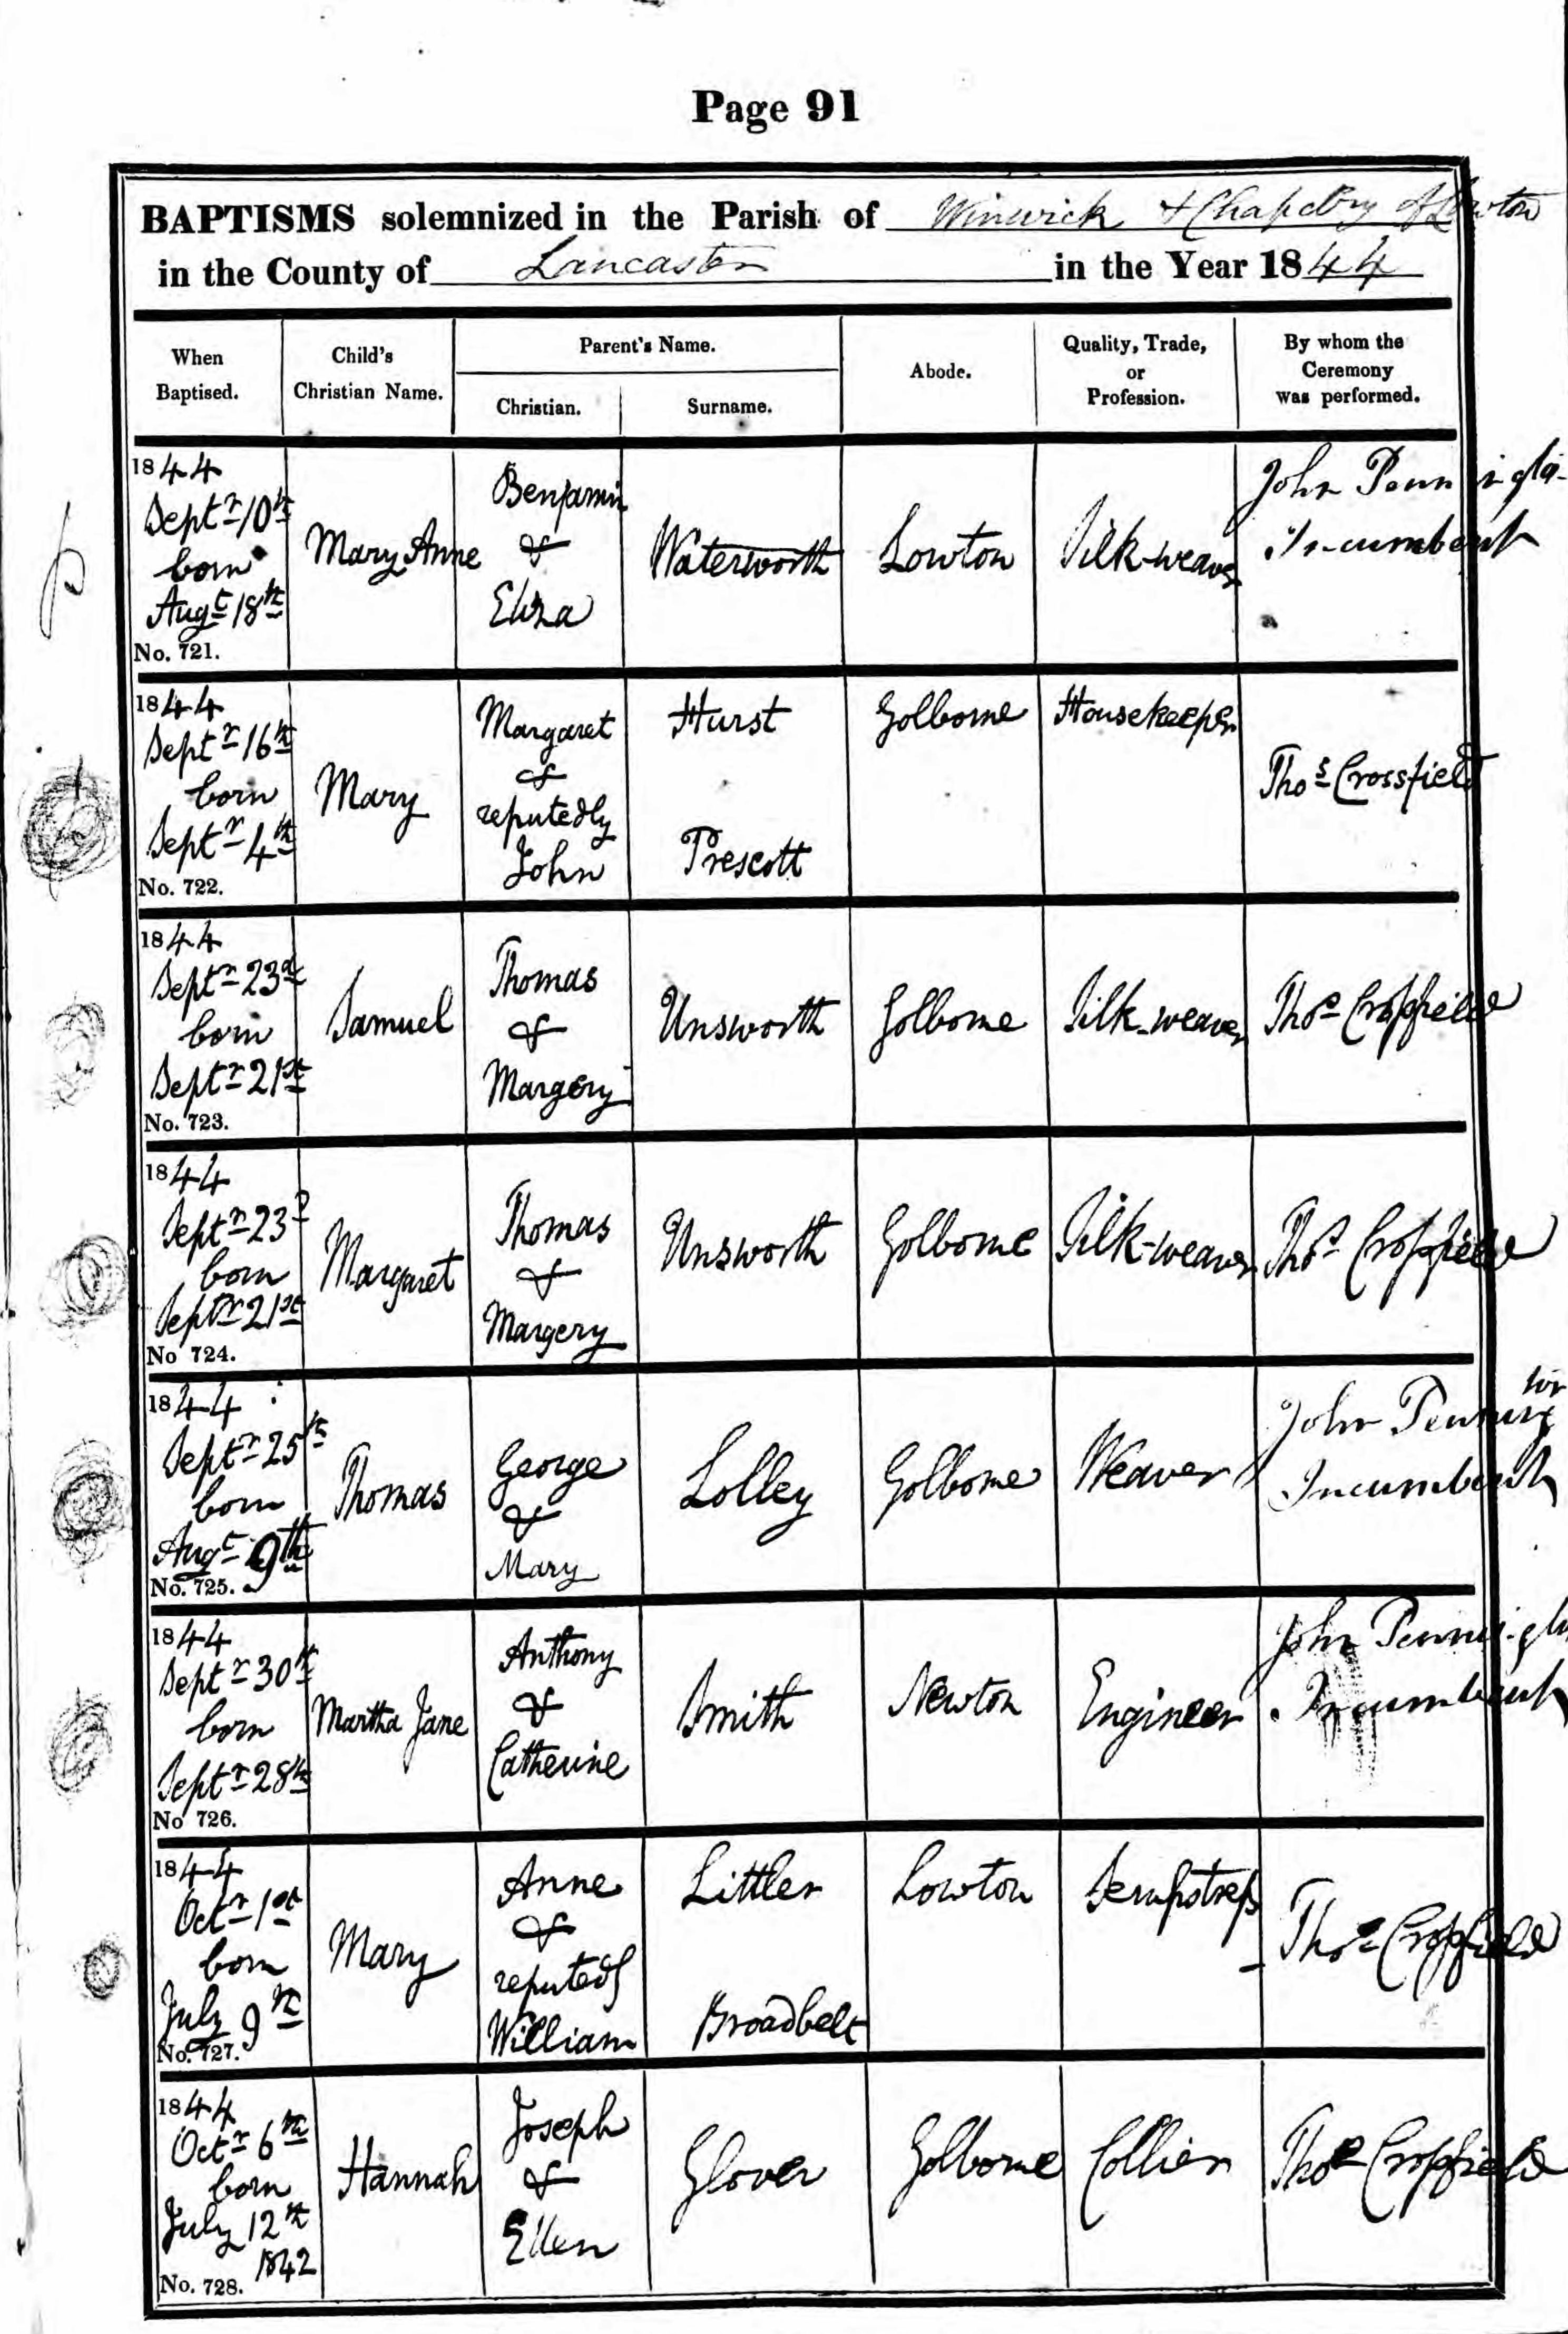 Page 91
BAPTISMS solemnized in the Parish of Winwick & Chapelry of Lowton
in the County of Lancaster in the Year 1844
When Baptised.
Child's Christian Name.
Parent's Name.
Christian.
Surname.
Abode.
Quality, Trade, or Profession.
By whom the Ceremony was performed.
1844
Septr 10th
born
Augt 18th
No. 721.
Mary Anne
Benjamin
&
Eliza
Waterworth
Lowton
Silk-weaver
John Pennington
Incumbent
1844
Septr 16th
born
Septr 4th
No. 722.
Mary
Margaret
&
reputedly
John
Hurst
Prescott
Golborne
Housekeeper
Thos Crossfield
1844
Septr 23d
born
Septr 21st
No. 723.
Samuel
Thomas
&
Margery
Unsworth
Golborne
Silk-weaver
Thos Crossfield
1844
Septr 23d
born
Septr 21st
No 724.
Margaret
Thomas
&
Margery
Unsworth
Golborne
Silk-weaver
Thos Crossfield
1844
Septr 25th
born
Augt 9th
No. 725.
Thomas
George
&
Mary
Lolley
Golborne
Weaver
John Pennington
Incumbent
1844
Septr 30th
born
Septr 28th
No 726.
Martha Jane
Anthony
&
Catherine
Smith
Newton
Engineer
John Pennington
Incumbent
1844
Octr 1st
born
July 9th
No. 727.
Mary
Anne
&
reputedly
William
Littler
Broadbelt
Lowton
Sempstress
Thos Crossfield
1844
Octr 6th
born
July 12th
1842
No. 728.
Hannah
Joseph
&
Ellen
Glover
Golborne
Collier
Thos Crossfield